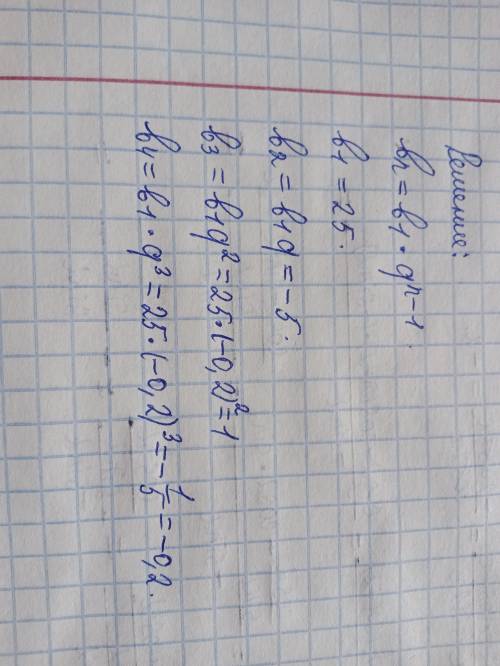 Решение:
bn = b1 · q^n-1.
b1 = 25.
b2 = b1q = -5.
b3 = b1q² = 25·(-0,2)² = 1
b4 = b1 · q³ = 25·(-0,2)³ = -1/5 = -0,2.